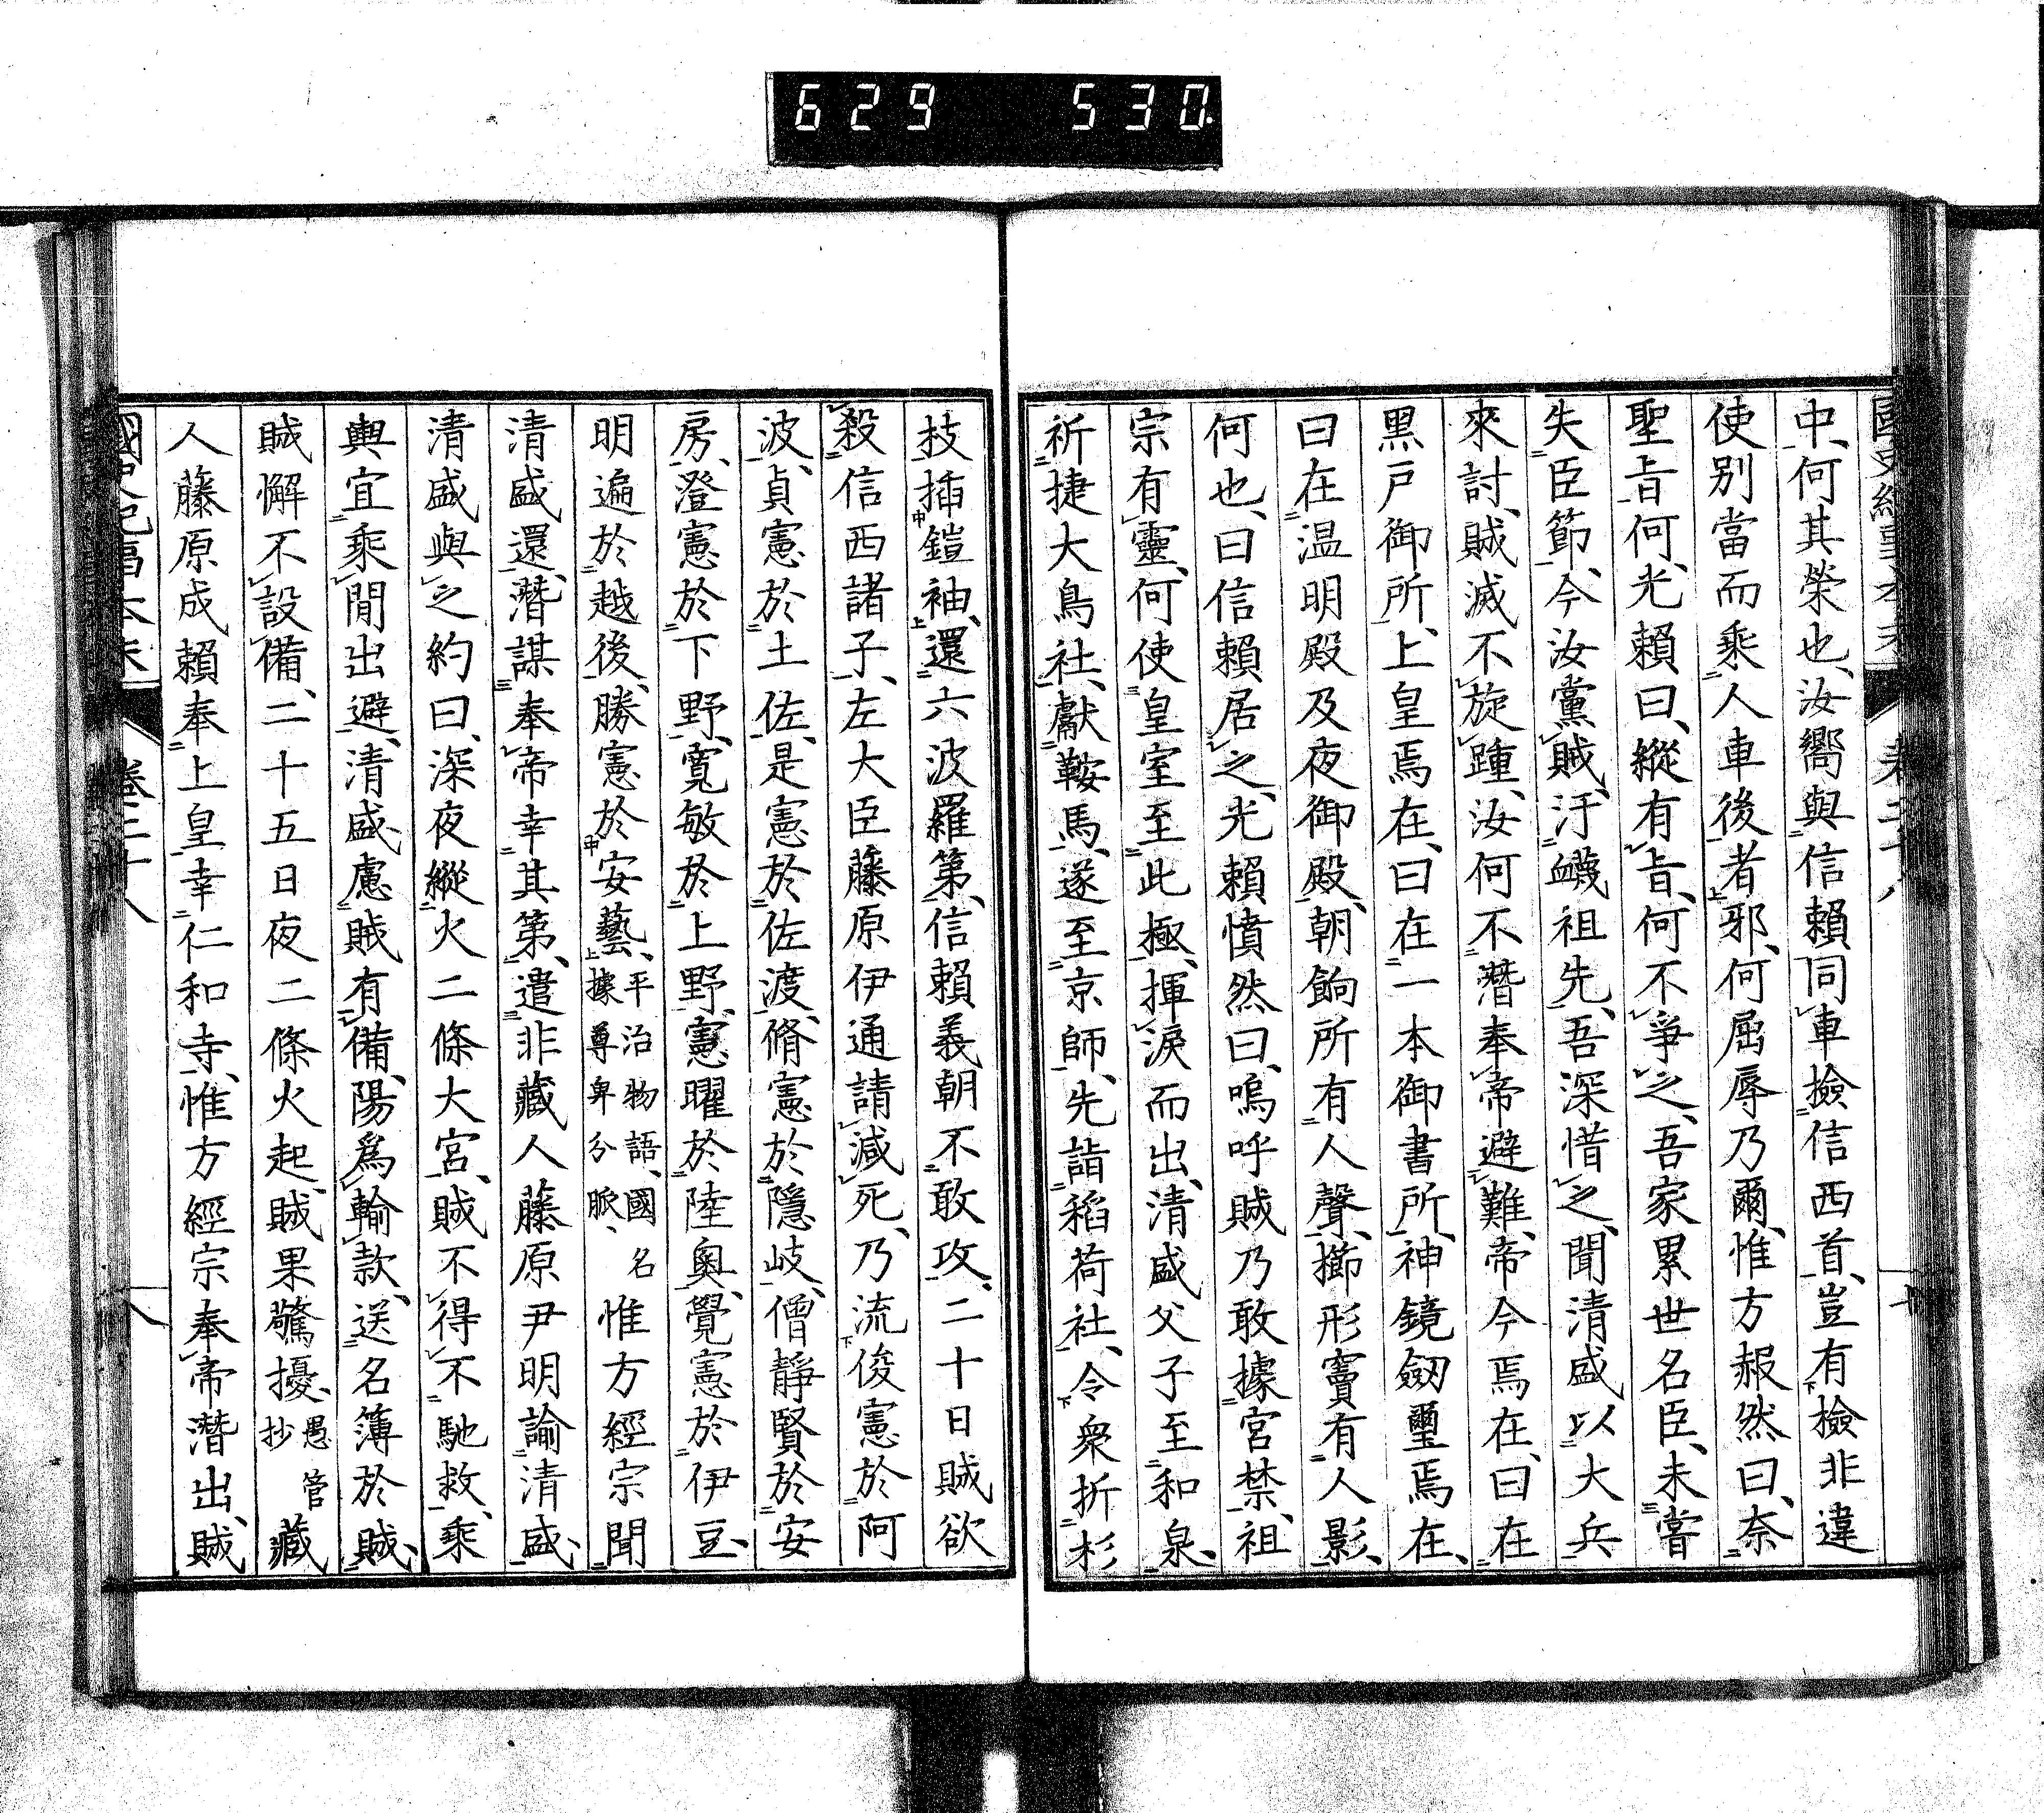 629 530.
中、何其榮也、汝嚮與信賴同車撿信西首、豈有撿非違
使別當而乘人車後者邪、何屈辱乃爾、惟方赧然曰、奈
聖旨何、光賴曰、縱有旨、何不爭之、吾家累世名臣、未嘗
失臣節、今汝黨賊、汙衊祖先、吾深惜之、聞清盛以大兵
來討、賊滅不旋踵、汝何不潛奉帝避難、帝今焉在、曰在
黑戸御所、上皇焉在、曰在一本御書所、神鏡劒璽焉在、
曰在温明殿及夜御殿、朝餉所有人聲、櫛形竇有人影、
何也、曰信賴居之、光賴憤然曰、嗚呼賊乃敢據宮禁、祖
宗有靈、何使皇室至此極、揮淚而出、清盛父子至和泉、
祈捷大鳥社、獻鞍馬、遂至京師、先詣稻荷社、令衆折杉
技插鎧袖、還六波羅第、信賴義朝不敢攻、二十日賊欲
殺信西諸子、左大臣藤原伊通請減死、乃流俊憲於阿
波、貞憲於土佐、是憲於佐渡、脩憲於隱岐、僧靜賢於安
房、澄憲於下野、寬敏於上野、憲曜於陸奧、覺憲於伊豆、
明遍於越後、勝憲於安藝、平治物語、國名據尊卑分脈、惟方經宗聞
清盛還、潛謀奉帝幸其第、遣非藏人藤原尹明諭清盛、
清盛與之約曰、深夜縱火二條大宮、賊不得不馳救、乘
輿宜乘閒出避、清盛慮賊有備、陽爲輸款、送名簿於賊、
賊懈不設備、二十五日夜二條火起、賊果驚擾、愚管抄藏
人藤原成賴奉上皇幸仁和寺、惟方經宗奉帝潛出、賊
國史紀事本末 卷二十八 八